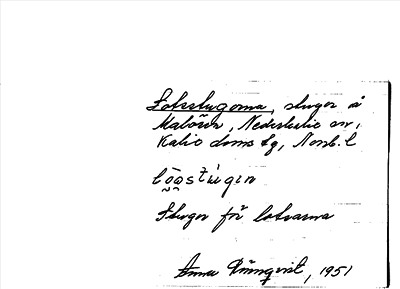 Lotsstugorna, stugor å
Malören, Nederkalix sn,
Kalix doms. tg, Norrb. l
Stugor för lotsarna
Anna Rönnqvist, 1951